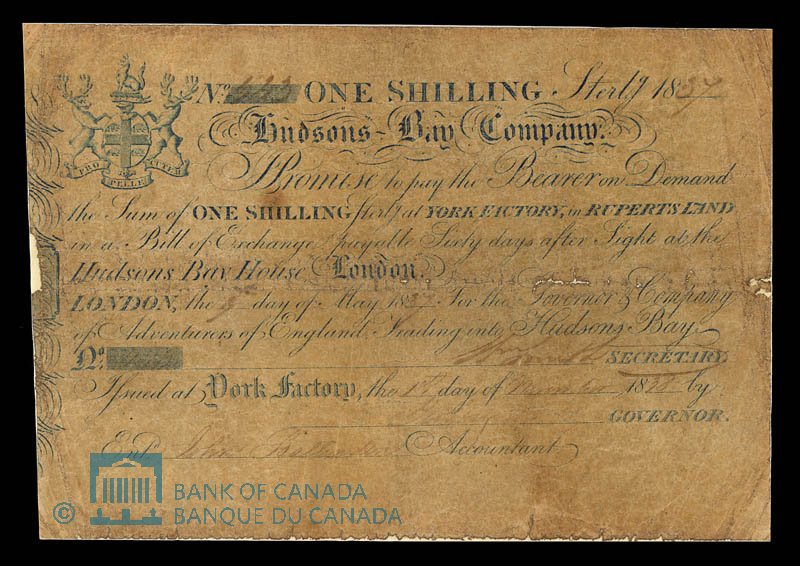 PRO PELLE CUTEM
No. ONE SHILLING Sterlg 1837
Hudsons-Bay Company.
I Promise to pay the Bearer on Demand
the Sum of ONE SHILLING Sterlg at YORK FACTORY, in RUPERTS LAND
in a Bill of Exchange payable Sixty days after Sight at the
Hudsons Bay House, London.
LONDON, the day of May 1837 For the Governor & Company
of Adventurers of England, Trading into Hudsons Bay.
No. SECRETARY.
Issued at York Factory, the 1st day of 18 by
GOVERNOR.
Entd. John Accountant
BANK OF CANADA
© BANQUE DU CANADA